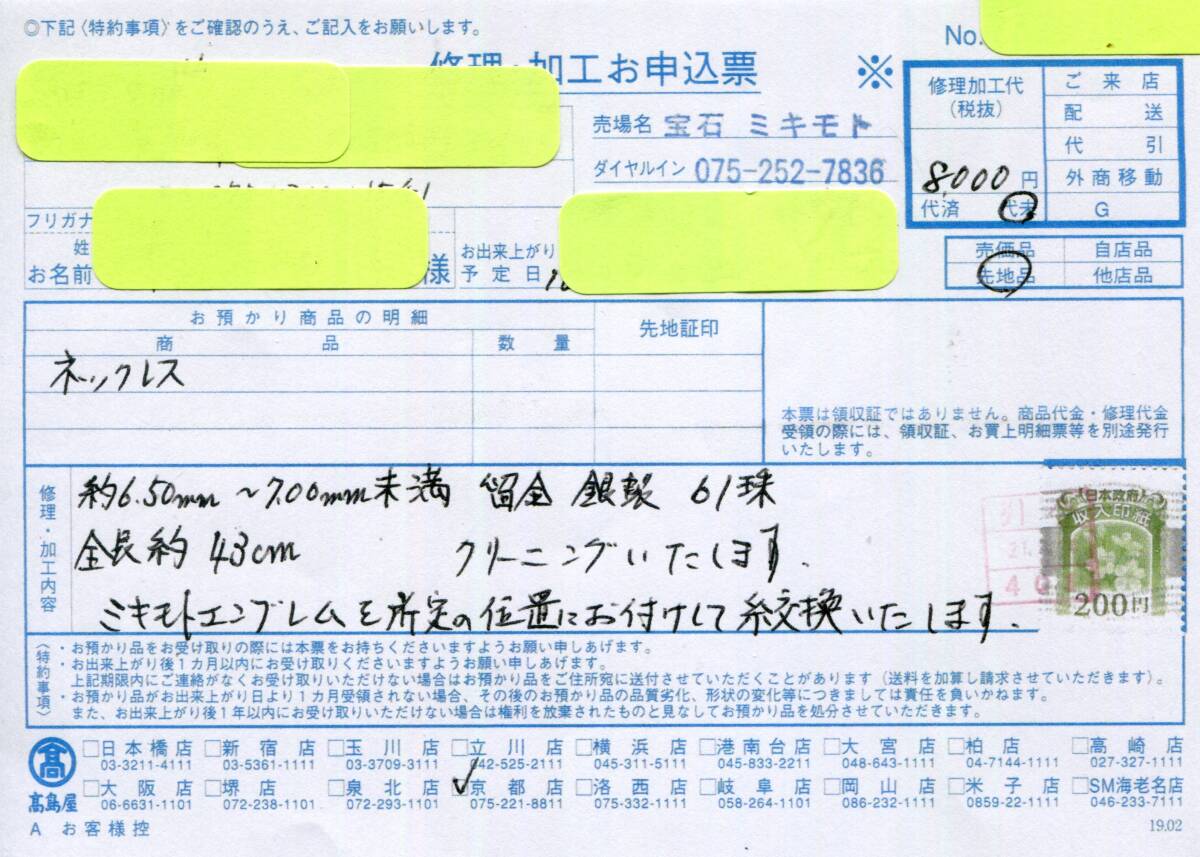 ◎下記〈特約事項〉をご確認のうえ、ご記入をお願いします。
No.
修理・加工お申込票
※
売場名 宝石 ミキモト
ダイヤルイン 075-252-7836
修理加工代
(税抜)
8,000 円
代済 代未
ご来店
配送
代引
外商移動
G
フリガナ
姓
お名前
様
お出来上がり
予定日
売価品 自店品
先地品 他店品
お預かり商品の明細
商品 数量 先地証印
ネックレス
本票は領収証ではありません。商品代金・修理代金
受領の際には、領収証、お買上明細票等を別途発行
いたします。
修理・加工内容
約6.50mm～7.00mm未満 留金 銀製 61珠
全長約 43cm クリーニングいたします.
ミキモトエンブレムを所定の位置にお付けして糸交換いたします.
日本政府
収入印紙
200円
〈特約事項〉
・お預かり品をお受け取りの際には本票をお持ちくださいますようお願い申しあげます。
・お出来上がり後1カ月以内にお受け取りくださいますようお願い申しあげます。
上記期限内にご連絡がなくお受け取りいただけない場合はお預かり品をご住所宛に送付させていただくことがあります（送料を加算し請求させていただきます）。
・お預かり品がお出来上がり日より1カ月受領されない場合、その後のお預かり品の品質劣化、形状の変化等につきましては責任を負いかねます。
また、お出来上がり後1年以内にお受け取りいただけない場合は権利を放棄されたものと見なしてお預かり品を処分させていただきます。
髙
髙島屋
□日本橋店 □新宿店 □玉川店 □立川店 □横浜店 □港南台店 □大宮店 □柏店 □高崎店
03-3211-4111 03-5361-1111 03-3709-3111 042-525-2111 045-311-5111 045-833-2211 048-643-1111 04-7144-1111 027-327-1111
□大阪店 □堺店 □泉北店 ☑京都店 □洛西店 □岐阜店 □岡山店 □米子店 □SM海老名店
06-6631-1101 072-238-1101 072-293-1101 075-221-8811 075-332-1111 058-264-1101 086-232-1111 0859-22-1111 046-233-7111
A お客様控
19.02